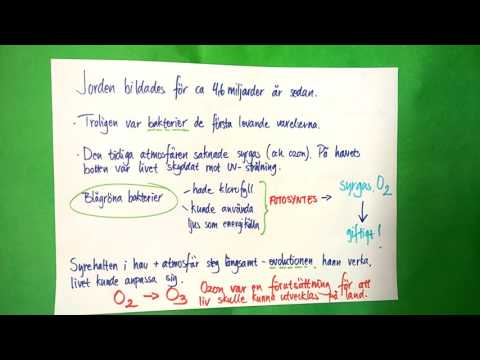 Jorden bildades för ca 4,6 miljarder år sedan.
· Troligen var bakterier de första levande varelserna.
· Den tidiga atmosfären saknade syrgas (och ozon). På havets
botten var livet skyddat mot UV-strålning.
Blågröna bakterier
- hade klorofyll
- kunde använda
ljus som energikälla
FOTOSYNTES →
syrgas, O2
↓
giftigt!
Syrehalten i hav + atmosfär steg långsamt - evolutionen hann verka,
livet kunde anpassa sig.
O2 → O3
Ozon var en förutsättning för att
liv skulle kunna utvecklas på land.